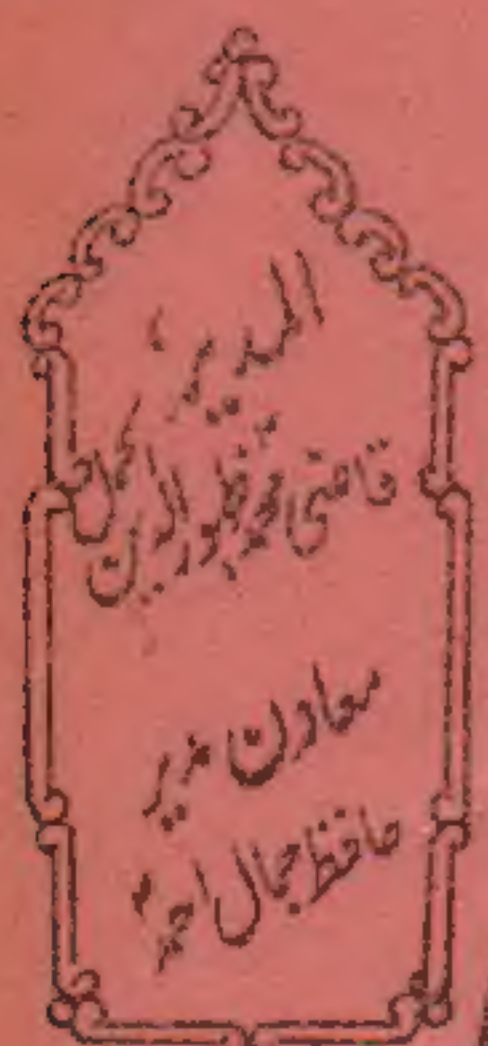 المدیر،
قاضی محمد ظہور الدین اکمل
معاون مدیر
حافظ جمال احمد